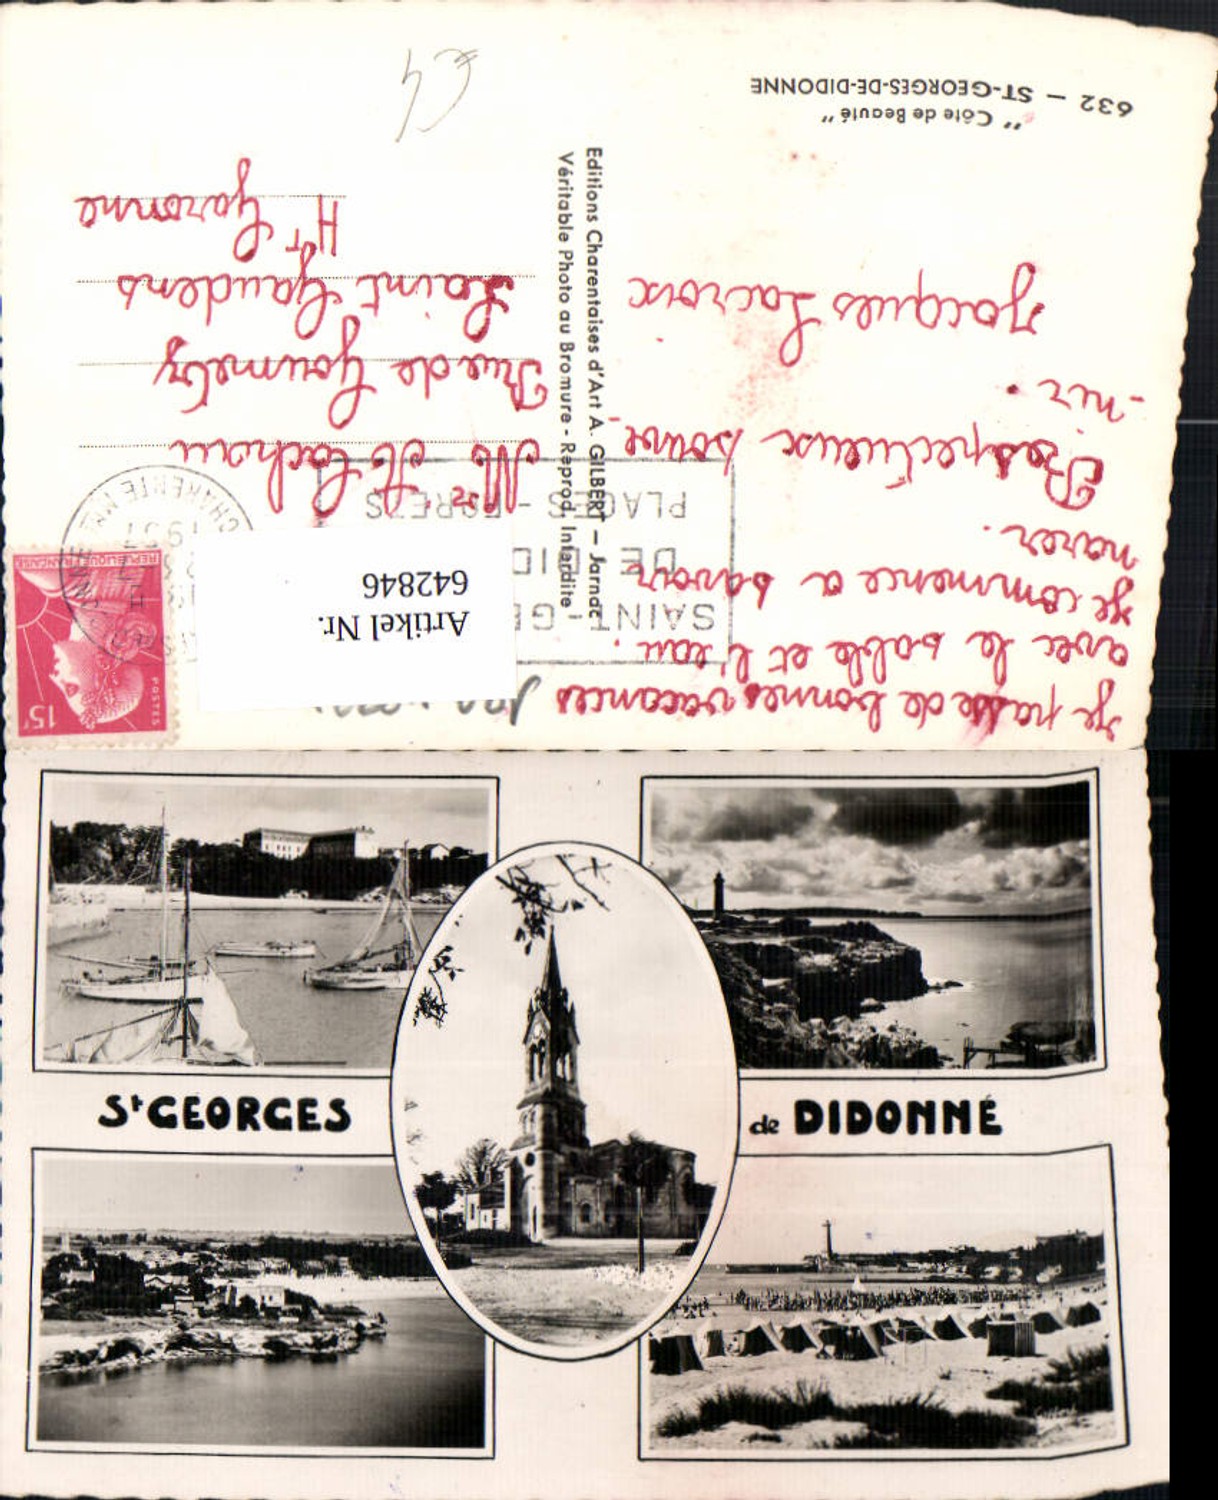 632 — ST-GEORGES-DE-DIDONNE
" Côte de Beauté "
Je passe de bonnes vacances
avec le sable et l'eau.
Je commence a savoir
nager.
Respectueux souve
-nir.
Jacques Lacroix
Editions Charentaises d'Art A. GILBERT — Jarnac
Véritable Photo au Bromure - Reprod. Interdite
SAINT-GE
DE DID
PLAGES - FORETS
CHARENTE MME
1957
POSTES
15F
REPUBLIQUE FRANÇAISE
Artikel Nr.
642846
Rue de Goumetx
Saint Gaudens
Hte Garonne
€4
St GEORGES de DIDONNE